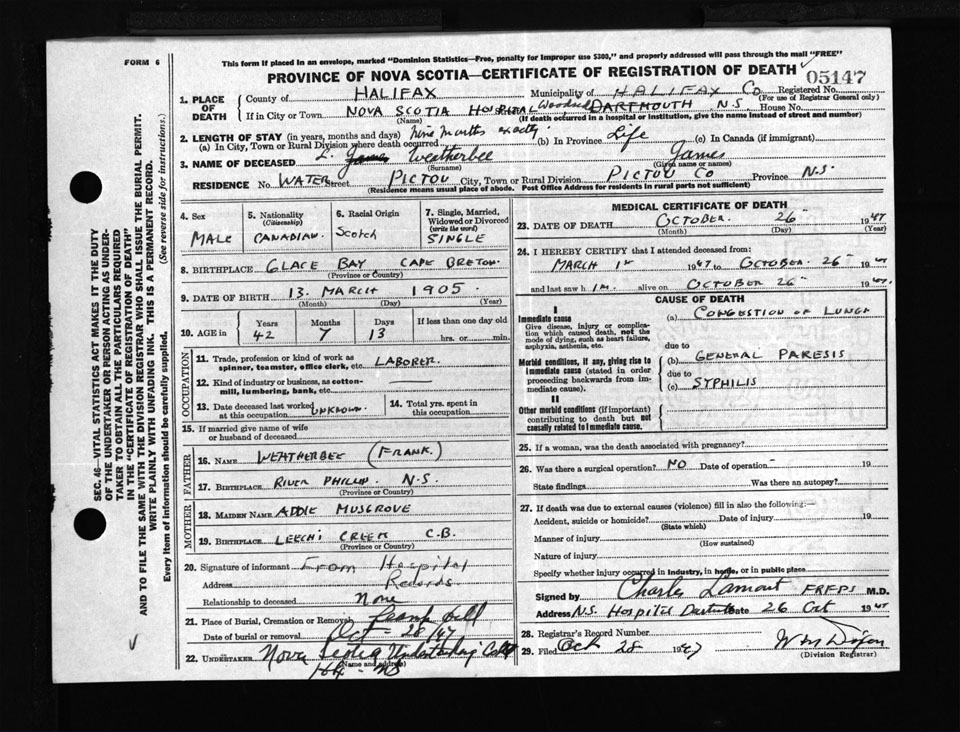 FORM 6
This form if placed in an envelope, marked "Dominion Statistics—Free, penalty for improper use $300," and properly addressed will pass through the mail "FREE"
PROVINCE OF NOVA SCOTIA—CERTIFICATE OF REGISTRATION OF DEATH
05147
1. PLACE OF DEATH
County of HALIFAX Municipality of HALIFAX Co Registered No.
(For use of Registrar General only)
If in City or Town NOVA SCOTIA HOSPITAL Woodside DARTMOUTH N.S House No.
(Name) (If death occurred in a hospital or institution, give the name instead of street and number)
2. LENGTH OF STAY (in years, months and days)
(a) In City, Town or Rural Division where death occurred Nine months exactly. (b) In Province Life (c) In Canada (if immigrant)
3. NAME OF DECEASED L. James Weatherbee James
(Surname) (Given name or names)
RESIDENCE No. WATER Street PICTOU City, Town or Rural Division PICTOU Co Province N.S.
(Residence means usual place of abode. Post Office Address for residents in rural parts not sufficient)
4. Sex MALE
5. Nationality (Citizenship) CANADIAN.
6. Racial Origin Scotch
7. Single, Married, Widowed or Divorced (write the word) SINGLE
8. BIRTHPLACE GLACE BAY CAPE BRETON.
(Province or Country)
9. DATE OF BIRTH 13. MARCH 1905.
(Month) (Day) (Year)
10. AGE in Years 42 Months 7 Days 13 If less than one day old hrs. or min.
OCCUPATION
11. Trade, profession or kind of work as spinner, teamster, office clerk, etc. LABORER.
12. Kind of industry or business, as cotton-mill, lumbering, bank, etc.
13. Date deceased last worked at this occupation UNKNOWN.
14. Total yrs. spent in this occupation
15. If married give name of wife or husband of deceased
FATHER
16. NAME WEATHERBEE (FRANK.)
17. BIRTHPLACE RIVER PHILLIP N.S.
(Province or Country)
MOTHER
18. MAIDEN NAME ADDIE MUSGROVE
19. BIRTHPLACE LEECHI CREEK C.B.
(Province or Country)
20. Signature of informant From Hospital
Address Records
Relationship to deceased None
21. Place of Burial, Cremation or Removal
Date of burial or removal Oct - 28/47
22. UNDERTAKER Nova Scotia Undertaking
(Name and address)
MEDICAL CERTIFICATE OF DEATH
23. DATE OF DEATH OCTOBER. 26 1947
(Month) (Day) (Year)
24. I HEREBY CERTIFY that I attended deceased from:
MARCH 1947 to OCTOBER. 26 1947
and last saw him alive on OCTOBER 26 1947.
CAUSE OF DEATH
I
Immediate cause
Give disease, injury or complication which caused death, not the mode of dying, such as heart failure, asphyxia, asthenia, etc.
(a) CONGESTION OF LUNGS
due to
Morbid conditions, if any, giving rise to immediate cause (stated in order proceeding backwards from immediate cause).
(b) GENERAL PARESIS
due to
(c) SYPHILIS
II
Other morbid conditions (if important) contributing to death but not causally related to immediate cause.
25. If a woman, was the death associated with pregnancy?
26. Was there a surgical operation? NO Date of operation 19
State findings Was there an autopsy?
27. If death was due to external causes (violence) fill in also the following:—
Accident, suicide or homicide? Date of injury 19
(State which)
Manner of injury
(How sustained)
Nature of injury
Specify whether injury occurred in industry, in home, or in public place
Signed by Charles Lamont M.D.
Address N.S. Hospital Date 26 Oct 1947
28. Registrar's Record Number
29. Filed Oct 28 1947
(Division Registrar)
SEC. 46—VITAL STATISTICS ACT MAKES IT THE DUTY
OF THE UNDERTAKER OR PERSON ACTING AS UNDER-
TAKER TO OBTAIN ALL THE PARTICULARS REQUIRED
IN THE "CERTIFICATE OF REGISTRATION OF DEATH"
AND TO FILE THE SAME WITH THE DIVISION REGISTRAR WHO SHALL ISSUE THE BURIAL PERMIT.
WRITE PLAINLY WITH UNFADING INK. THIS IS A PERMANENT RECORD.
Every item of information should be carefully supplied. (See reverse side for instructions.)